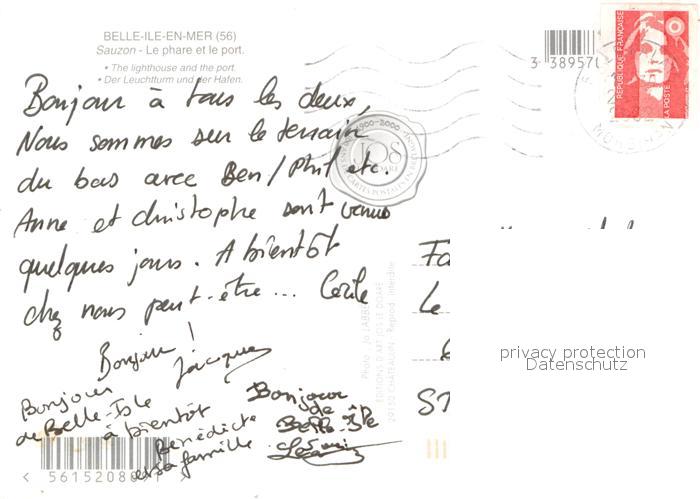 BELLE-ILE-EN-MER (56)
Sauzon - Le phare et le port.
• The lighthouse and the port.
• Der Leuchtturm und der Hafen.
3 389570
RÉPUBLIQUE FRANÇAISE
LA POSTE
MORBIHAN
Bonjour à tous les deux,
Nous sommes sur le terrain
du bas avec Ben/Phil etc.
Anne et christophe sont venus
quelques jours. A bientôt
chez nous peut-être... Cécile
Bonjour !
Jacques
Bonjour
de Belle-Isle
à bientôt
Bénédicte
et sa famille
Bonjour
de
Belle-île
1900-2000
JOS
Photo: Jo
EDITIONS D'ART JOS LE DOARÉ
29150 CHATEAULIN - Reprod. interdite
Le
privacy protection
Datenschutz